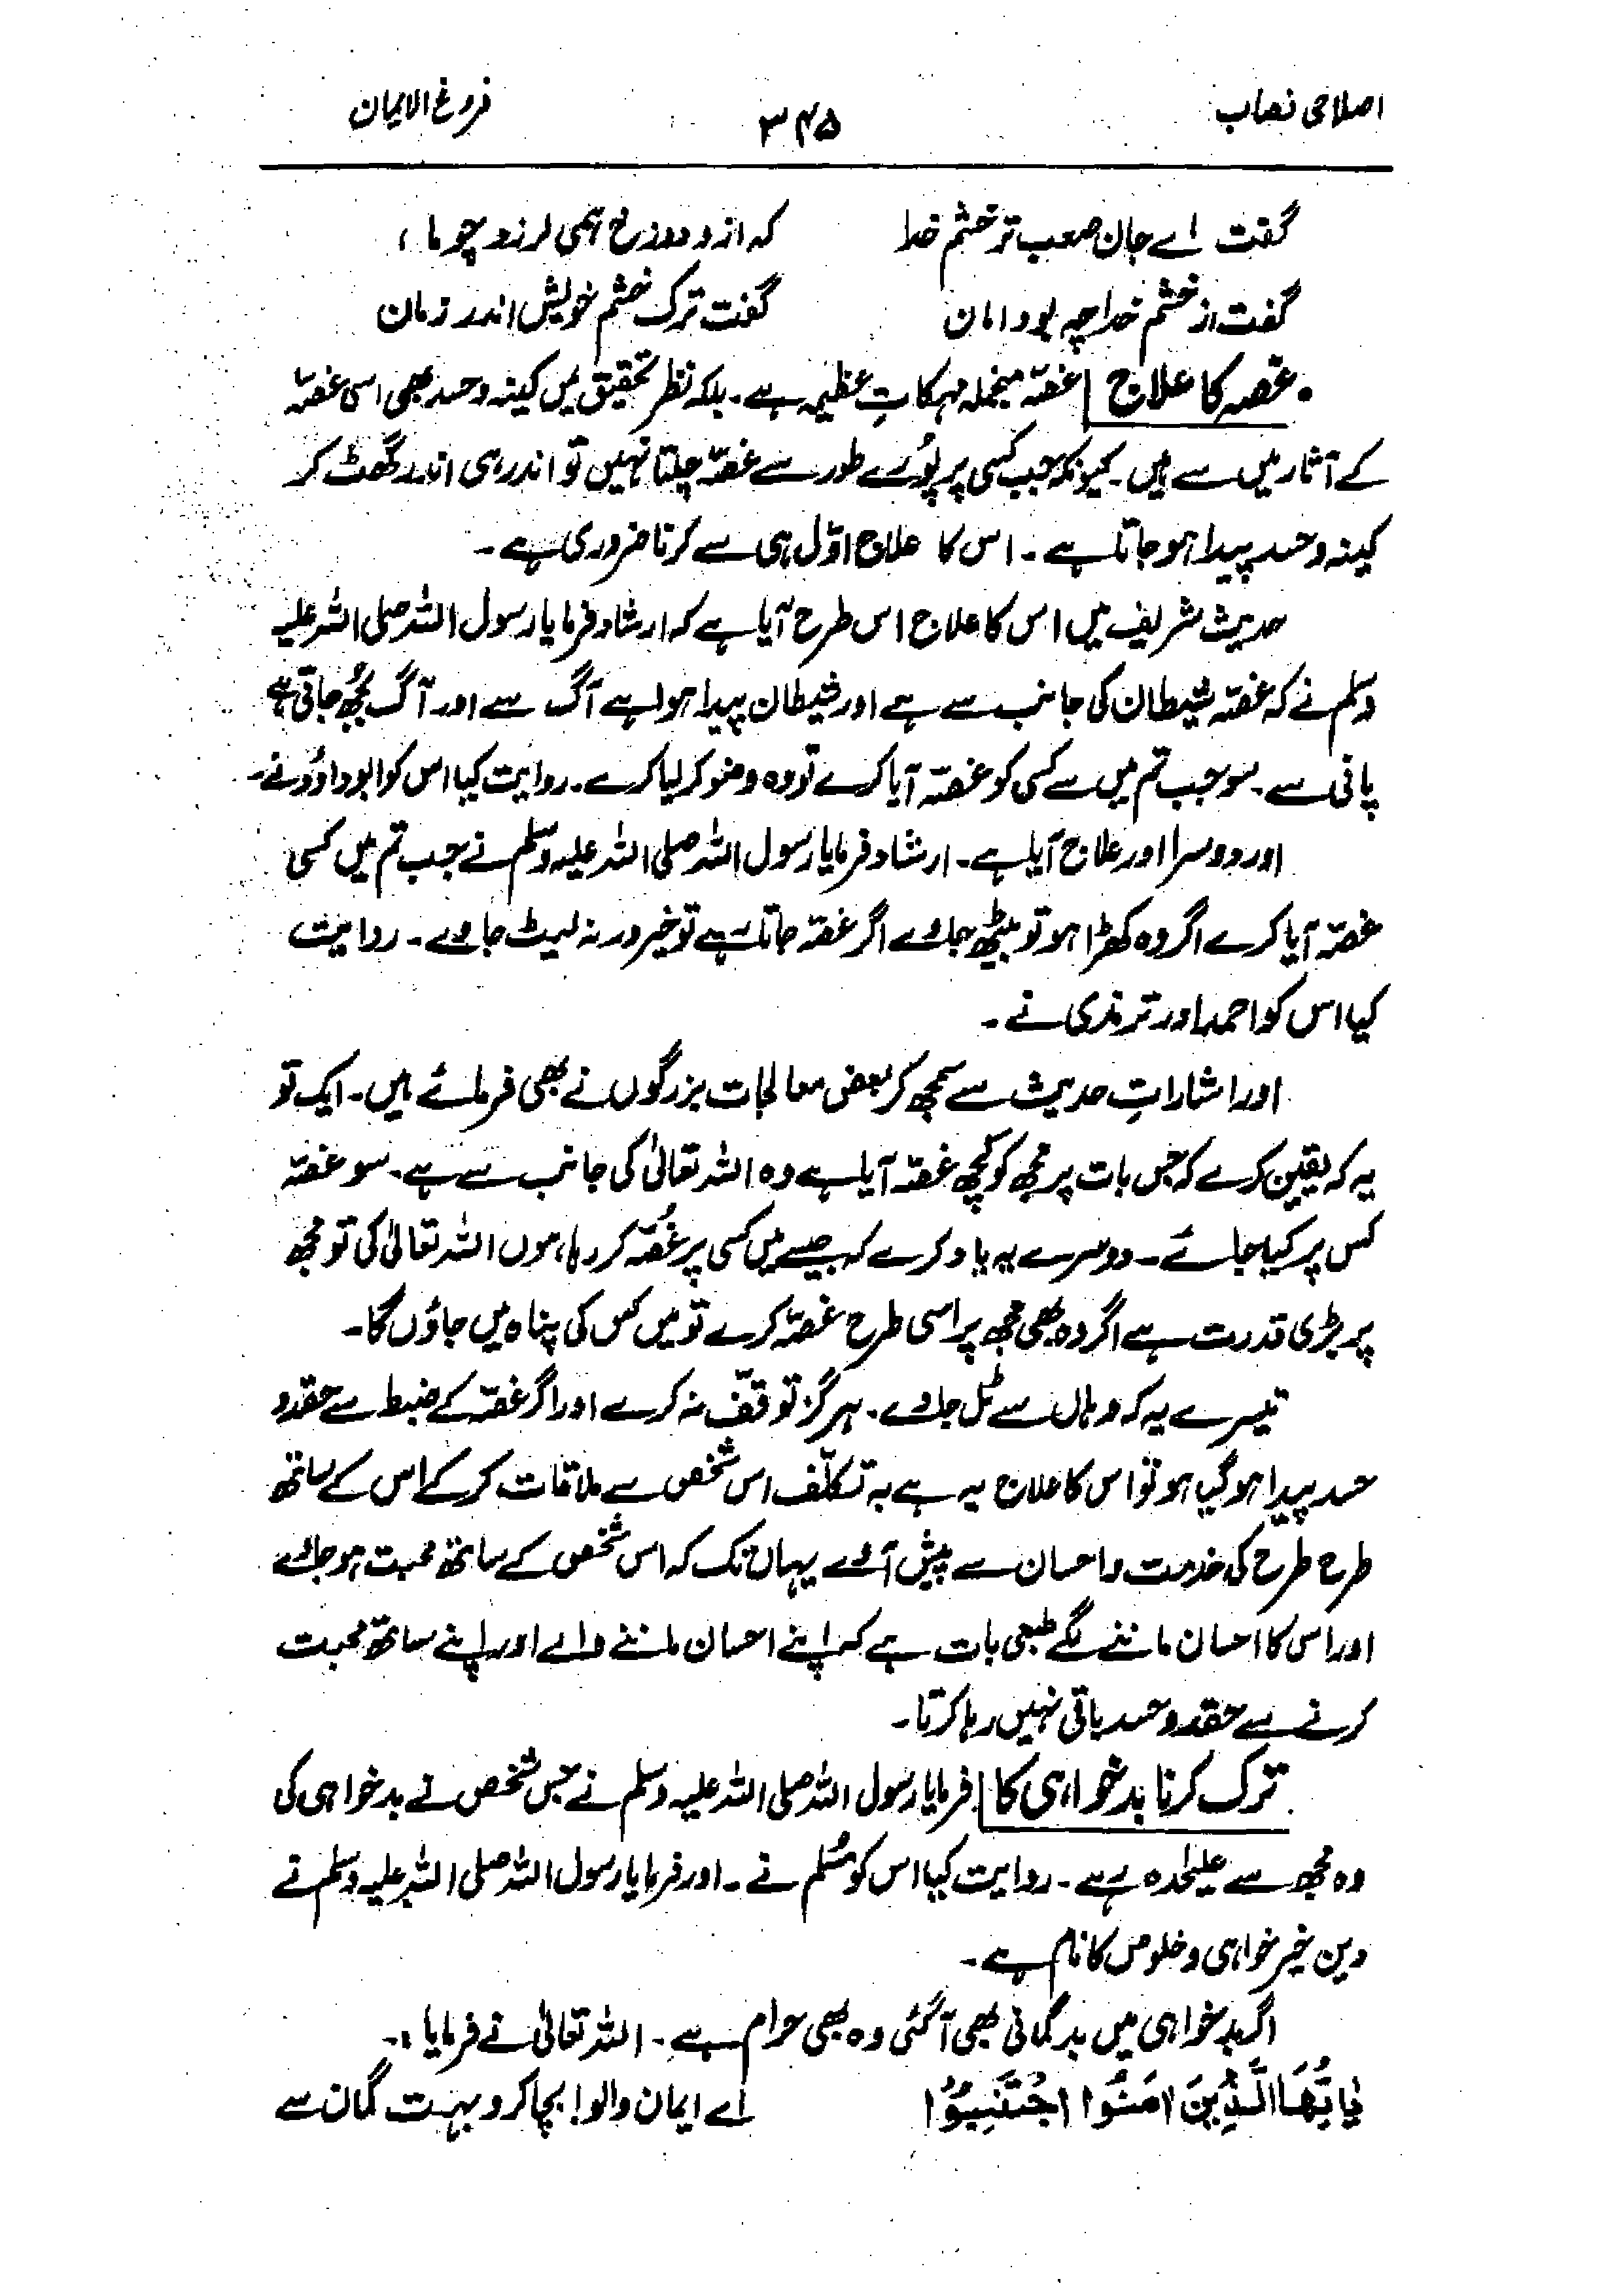 اصلاحی نصاب ۳۴۵ فروغ الایمان
گفت اے جان صعب تر خشم خدا کہ ازو دوزخ ہمی لرزد چو ما،
گفت از خشم خدا چہ بود امان گفت ترک خشم خویش اندر زمان
غصہ کا علاج غصّہ منجملہ مہلکاتِ عظیمہ ہے۔ بلکہ نظر تحقیق میں کینہ و حسد بھی اسی غصّہ
کے آثار میں سے ہیں۔ کیونکہ جب کسی پر پُورے طور سے غصّہ چلتا نہیں تو اندر ہی اندر گھٹ کر
کینہ و حسد پیدا ہو جاتا ہے۔ اس کا علاج اوّل ہی سے کرنا ضروری ہے۔
حدیث شریف میں اس کا علاج اس طرح آیا ہے کہ ارشاد فرمایا رسول اللہ صلی اللہ علیہ
وسلم نے کہ غصّہ شیطان کی جانب سے ہے اور شیطان پیدا ہوا ہے آگ سے اور آگ بُجھ جاتی ہے
پانی سے۔ سو جب تم میں سے کسی کو غصّہ آیا کرے تو وہ وضو کر لیا کرے۔ روایت کیا اس کو ابو داؤد نے۔
اور دوسرا اور علاج آیا ہے۔ ارشاد فرمایا رسول اللہ صلی اللہ علیہ وسلم نے جب تم میں کسی
غصّہ آیا کرے اگر وہ کھڑا ہو تو بیٹھ جاوے اگر غصّہ جاتا رہے تو خیر ورنہ لیٹ جاوے۔ روایت
کیا اس کو احمد اور ترمذی نے۔
اور اشاراتِ حدیث سے سمجھ کر بعض معالجات بزرگوں نے بھی فرمائے ہیں۔ ایک تو
یہ کہ یقین کرے کہ جس بات پر مجھ کو کچھ غصّہ آیا ہے وہ اللہ تعالیٰ کی جانب سے ہے۔ سو غصّہ
کس پر کیا جائے۔ دوسرے یہ یاد کرے کہ جیسے میں کسی پر غُصّہ کر رہا ہوں اللہ تعالیٰ کی تو مجھ
پر بڑی قدرت ہے اگر وہ بھی مجھ پر اسی طرح غصّہ کرے تو میں کس کی پناہ میں جاؤں گا۔
تیسرے یہ کہ وہاں سے ٹل جاوے۔ ہرگز توقّف نہ کرے اور اگر غصّہ کے ضبط سے حقد و
حسد پیدا ہو گیا ہو تو اس کا علاج یہ ہے بہ تکلّف اس شخص سے ملاقات کر کے اس کے ساتھ
طرح طرح کی خدمت و احسان سے پیش آوے یہاں تک کہ اس شخص کے ساتھ محبت ہو جائے
اور اس کا احسان ماننے لگے طبعی بات ہے کہ اپنے احسان ماننے والے اور اپنے ساتھ محبت
کرنے سے حقد و حسد باقی نہیں رہا کرتا۔
ترک کرنا بدخواہی کا فرمایا رسول اللہ صلی اللہ علیہ وسلم نے جس شخص نے بدخواہی کی
وہ مجھ سے علیٰحدہ ہے۔ روایت کیا اس کو مُسلم نے۔ اور فرمایا رسول اللہ صلی اللہ علیہ وسلم نے
دین خیر خواہی و خلوص کا نام ہے۔
اگر بدخواہی میں بدگمانی بھی آگئی وہ بھی حرام ہے۔ اللہ تعالیٰ نے فرمایا:۔
یٰاَیُّهَا الَّذِیْنَ اٰمَنُوا اجْتَنِبُوْا اے ایمان والو! بچا کرو بہت گمان سے